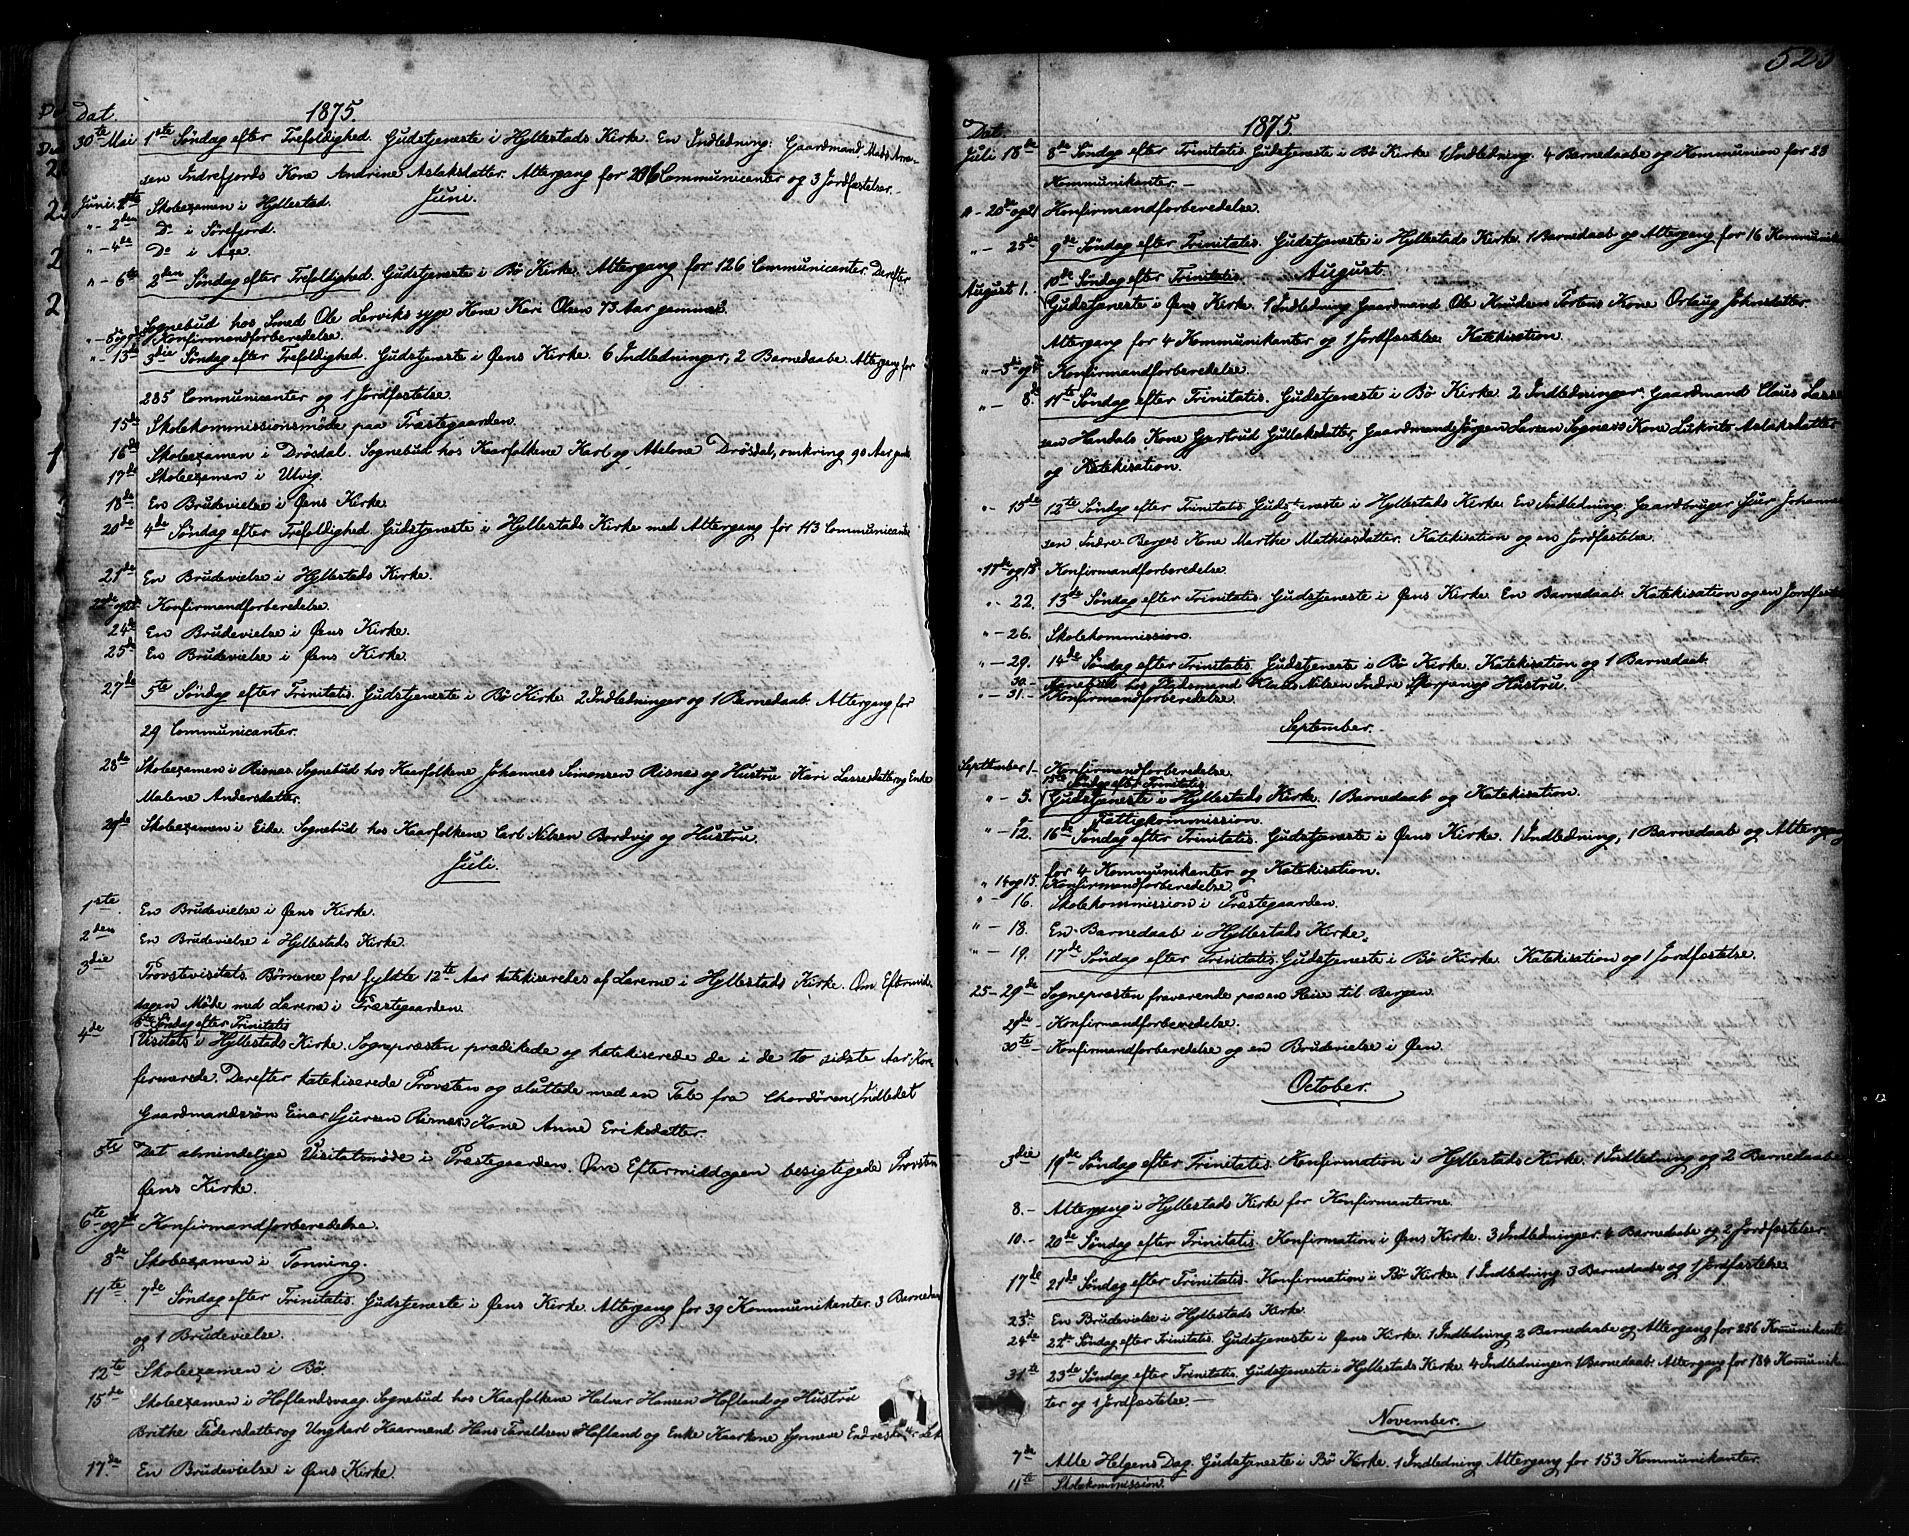 Dat. 1875.
30te Mai 1ste Søndag efter Trefoldighed. Gudstjeneste i Hyllestads Kirke. En Indledning: Gaardmand Mads Arne-
sen Indrefjords Kone Andrine Aslaksdatter. Altergang for 206 Communicenter og 3 Jordfæstelser.-
Juni.
Juni 1ste Skoleexamen i Hyllestad.
" - 2den Do i Sørefjord.
" - 4de Do i Aaa.
" - 6te 2den Søndag efter Trefoldighed. Gudstjeneste i Bø Kirke. Altergang for 126 Communicenter. Derefter
Sognebud hos Smed Ole Lerviks syge Kone Kari Olsen 73 Aar gammel.
" - 8 og Konfirmandforberedelse.
" - 13de 3die Søndag efter Trefoldighed. Gudstjeneste i Øens Kirke. 6 Indledninger, 2 Barnedaabe. Altergang for
285 Communicenter og 1 Jordfæstelse.
15de Skolekommissionsmøde paa Præstegaarden.
16de Skoleexamen i Drøsdal. Sognebud hos Kaarfolkene Karl og Malene Drøsdal, omkring 90 Aar gamle
17de Skoleexamen i Ulvig.
18de En Brudevielse i Øens Kirke.
20de 4de Søndag efter Trefoldighed. Gudstjeneste i Hyllestads Kirke med Altergang for 113 Communicanter
21de En Brudevielse i Hyllestads Kirke.
22de og Konfirmandforberedelse.
24de En Brudevielse i Øens Kirke.
25de En Brudevielse i Øens Kirke.
27de 5te Søndag efter Trinitatis. Gudstjeneste i Bø Kirke. 2 Indledninger og 1 Barnedaab. Altergang for
29 Communicanter.
28de Skoleexamen i Risnæs. Sognebud hos Kaarfolkene Johannes Simonsen Risnæs og Hustru Kari Lassesdatter og Enke
Malene Andersdatter.
29de Skoleexamen i Eide. Sognebud hos Kaarfolkene Carl Nilsen Bordvig og Hustru.
Juli.
1ste En Brudevielse i Øens Kirke.
2den En Brudevielse i Hyllestads Kirke.
3die Provstevisitats. Børnene fra fyldte 12te Aar katekiseredes af Lærerne i Hyllestads Kirke. Om Eftermid-
dagen Møde med Lærerne i Præstegaarden.
6te Søndag efter Trinitatis
4de Visitats i Hyllestads Kirke. Sognepræsten prædikede og katekiserede de i de to sidste Aar Kon-
firmerede. Derefter katekiserede Provsten og sluttede med en Tale fra Chordøren. Indledet
Gaardmandssøn Einar Sjursen Risnæs Kone Anne Eriksdatter.
5te Det almindelige Visitatsmøde i Præstegaarden. Om Eftermiddagen besigtigede Provsten
Øens Kirke.
6te og 7de Konfirmandforberedelse.
8de Skoleexamen i Tonning.
11te 7de Søndag efter Trinitatis. Gudstjeneste i Øens Kirke. Altergang for 39 Kommunikanter. 3 Barnedaab
og 1 Brudevielse.
12te Skoleexamen i Bø.
15de Skoleexamen i Hoflandsvaag. Sognebud hos Kaarfolkene Halvor Hansen Hofland og Hustru
Brithe Pedersdatter og Ungkarl Kaarmand Hans Haraldsen Hofland og Enke Kaarkone Synneve Endresdatter
17de En Brudevielse i Øens Kirke.
523
Dat. 1875.
Juli 18de 8de Søndag efter Trinitatis. Gudstjeneste i Bø Kirke. 1 Indledning. 4 Barnedaabe og Kommunion for 28
Kommunikanter.-
" - 20de og 21 Konfirmandforberedelse.
" - 25de 9de Søndag efter Trinitatis. Gudstjeneste i Hyllestads Kirke. 1 Barnedaab og Altergang for 16 Kommunik
10de Søndag efter Trinitatis. August.
August 1. Gudstjeneste i Øens Kirke. 1 Indledning Gaardmand Ole Knudsen Portens Kone Orlaug Johnsdatter.
Altergang for 4 Kommunikanter og 1 Jordfæstelse. Katekisation.
" - 3die og Konfirmandforberedelse.
" - 8de 11te Søndag efter Trinitatis. Gudstjeneste i Bø Kirke. 2 Indledninger: Gaardmand Claus Lasse-
sen Høndals Kone Gjertrud Gullaksdatter, Gaardmand Jørgen Larsen Sognes's Kone Lukrits Aslaksdatter
og Katekisation.
" - 15de 12te Søndag efter Trinitatis. Gudstjeneste i Hyllestads Kirke. En Indledning, Gaardbruger Sjur Johanne-
sen Indre Berges Kone Marthe Mathiasdatter. Katekisation og en Jordfæstelse.
" 17de og 18de Konfirmandforberedelse.
" - 22. 13de Søndag efter Trinitatis. Gudstjeneste i Øens Kirke. En Barnedaab. Katekisation og en Jordfæstel
" - 26. Skolekommission.
" - 29. 14de Søndag efter Trinitatis. Gudstjeneste i Bø Kirke. Katekisation og 1 Barnedaab.
30. Sognebud hos Pladsmand Klaus Nilsen Indre Hustru.
" - 31. - Konfirmandforberedelse.
September.
September 1 - Konfirmandforberedelse.
15te Søndag efter Trinitatis
" - 5. Gudstjeneste i Hyllestads Kirke. 1 Barnedaab og Katekisation.
9. Fattigkommission.
" - 12. 16de Søndag efter Trinitatis. Gudstjeneste i Øens Kirke. 1 Indledning, 1 Barnedaab og Altergang
for 4 Kommunikanter og Katekisation.
" 14 og 15. Konfirmandforberedelse.
" - 16. Skolekommission i Præstegaarden.
" - 18. En Barnedaab i Hyllestads Kirke.
" - 19. 17de Søndag efter Trinitatis. Gudstjeneste i Bø Kirke. Katekisation og 1 Jordfæstelse.
25 - 29de Sognepræsten fraværende paa en Reise til Bergen.
29de - Konfirmandforberedelse.
30te - Konfirmandforberedelse og en Brudevielse i Øen.
October.
3die 19de Søndag efter Trinitatis. Konfirmation i Hyllestads Kirke. 1 Indledning og 2 Barnedaabe
8. - Altergang i Hyllestads Kirke for Konfirmanterne.
10. - 20de Søndag efter Trinitatis. Konfirmation i Øens Kirke. 3 Indledninger. 4 Barnedaabe og 2 Jordfæstelser.
17de 21de Søndag efter Trinitatis. Konfirmation i Bø Kirke. 1 Indledning. 3 Barnedaabe og 1 Jordfæstelse.
23de En Brudevielse i Hyllestads Kirke.
24de 22de Søndag efter Trinitatis. Gudstjeneste i Øens Kirke. 1 Indledning 2 Barnedaabe og Altergang for 256 Kommunikante
31te 23de Søndag efter Trinitatis. Gudstjeneste i Hyllestads Kirke. 4 Indledninger. 1 Barnedaab. Altergang for 184 Komuniken-
ter og 1 Jordfæstelse.-
November.
7de Alle Helgens Dag. Gudstjeneste i Bø Kirke. 1 Indledning. Altergang for 153 Kommunikanter.
11te Skolekommission.